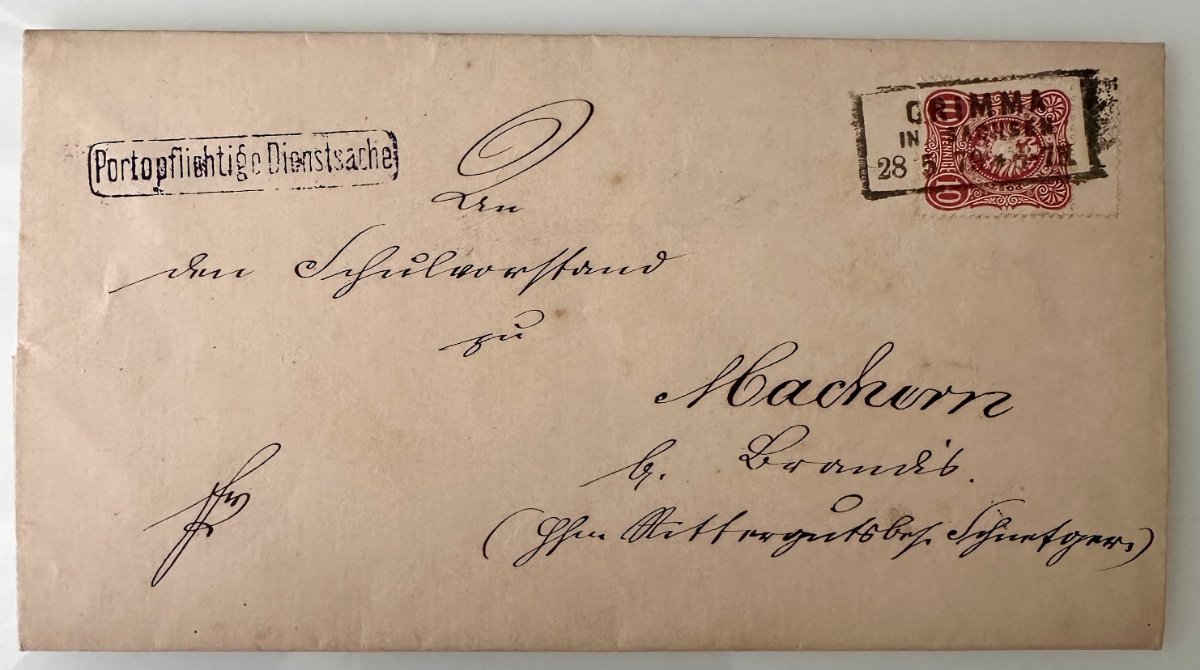 Portopflichtige Dienstsache
GRIMMA
IN SACHSEN
28 5
10 PFENNIG 10
An
den Schulvorstand
zu
Machern
b. Brandis.
(Hhrn Rittergutsbes. Schnetger.)